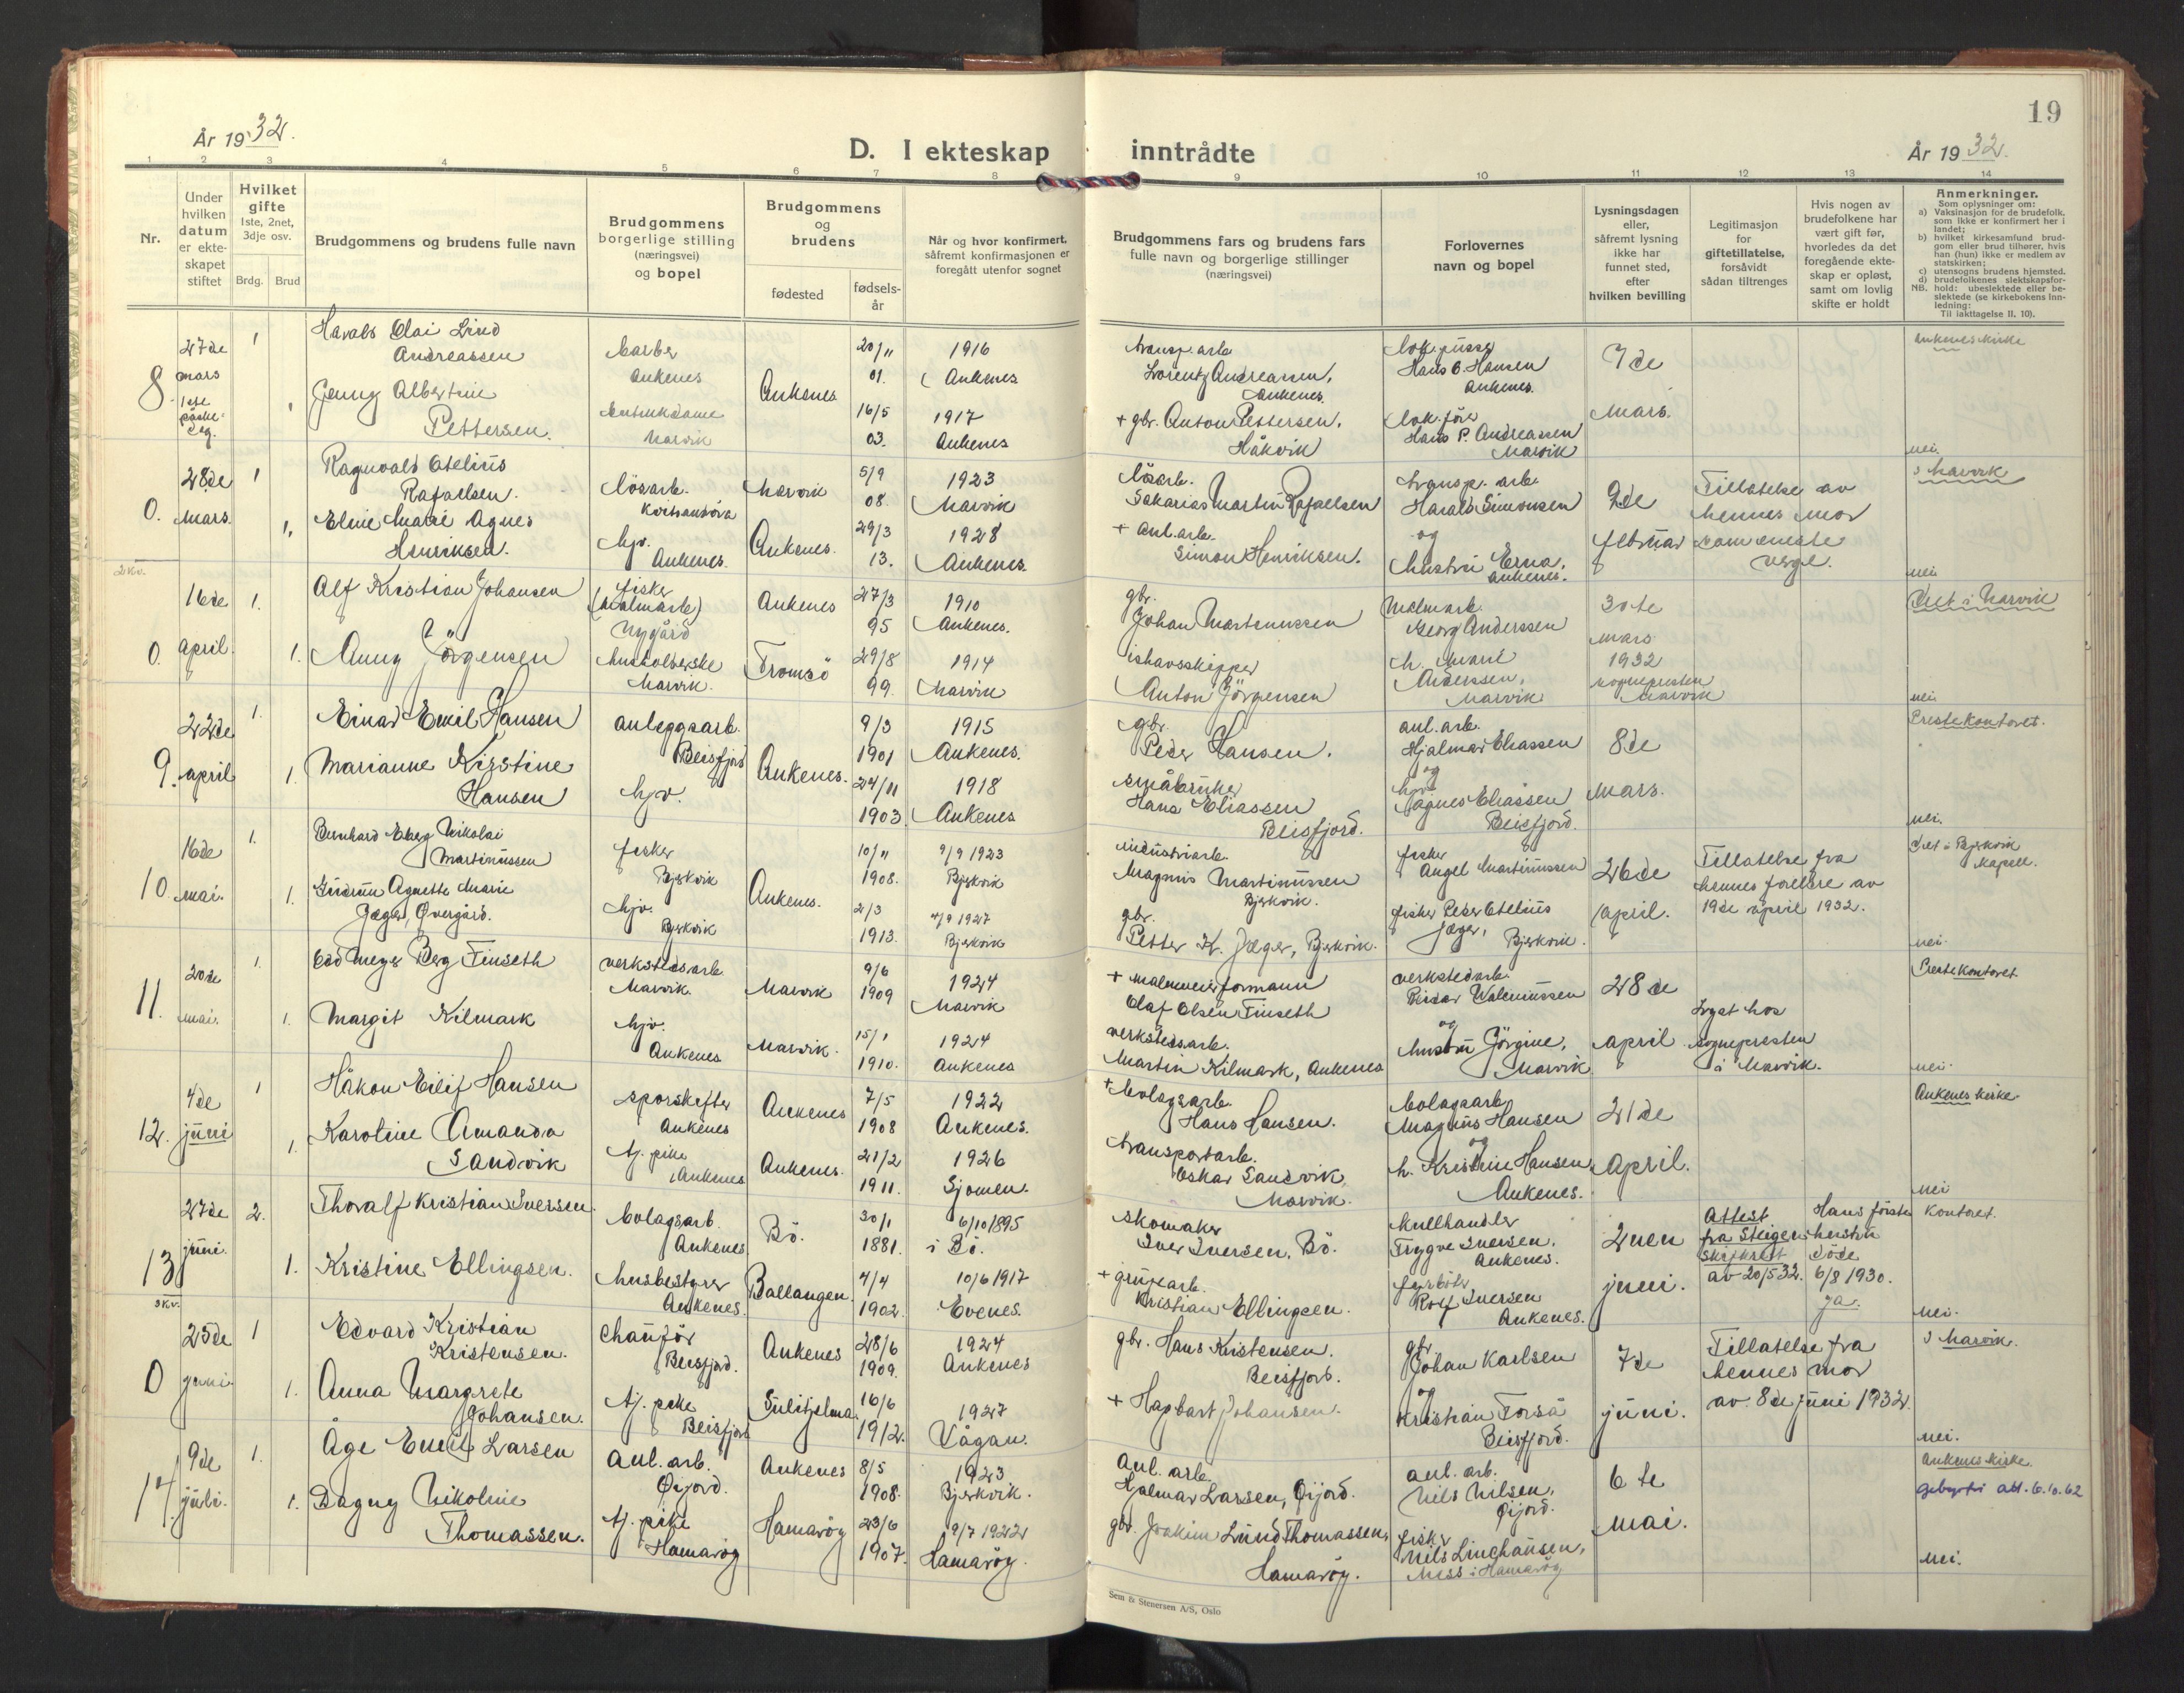 19
År 1932.
D. I ekteskap inntrådte
År 1932.
1 2 3 4 5 6 7 8 9 10 11 12 13 14
Nr.
Under hvilken datum er ekteskapet stiftet
Hvilket gifte
1ste, 2net, 3dje osv.
Brdg. Brud
Brudgommens og brudens fulle navn
Brudgommens borgerlige stilling (næringsvei) og bopel
Brudgommens og brudens
fødested
fødselsår
Når og hvor konfirmert, såfremt konfirmasjonen er foregått utenfor sognet
Brudgommens fars og brudens fars fulle navn og borgerlige stillinger (næringsvei)
Forlovernes navn og bopel
Lysningsdagen eller, såfremt lysning ikke har funnet sted, efter hvilken bevilling
Legitimasjon for giftetillatelse, forsåvidt sådan tiltrenges
Hvis nogen av brudefolkene har vært gift før, hvorledes da det foregående ekteskap er opløst, samt om lovlig skifte er holdt
Anmerkninger.
Som oplysninger om:
a) Vaksinasjon for de brudefolk, som ikke er konfirmert her i landet;
b) hvilket kirkesamfund brudgom eller brud tilhører, hvis han (hun) ikke er medlem av statskirken;
c) utensogns brudens hjemsted.
d) brudefolkenes slektskapsforhold: ubeslektede eller beslektede (se kirkebokens Innledning:
NB.
Til iakttagelse II. 10).
8. 27de mars 1ste påskedag. 1 Olai Lind Andreassen barber Ankenes Ankenes 20/11 01. 1916 Ankenes transp. arb. Lorentz Andreassen, Ankenes. lok. pusser Hans O. Hansen Ankenes. 7de mars. Ankenes kirke
1 Jenny Albertine Pettersen. Narvik 16/5 03. 1917 Ankenes + gbr. Anton Pettersen, Håkvik lok. förer Hans P. Andreassen Narvik nei.
0. 28de mars. 1 Ragnvald Otelius Rafaelsen. lösarb. Narvik 5/9 08. 1923 Narvik lösarb. Sakarias Martin Rafaelsen transp. arb. Harald Simonsen 2de februar Tillatelse av hennes mor som eneste verge. i Narvik
1. Marie Agnes Henriksen. hjv. Ankenes. Ankenes. 29/3 13. 1928 Ankenes. + anl. arb. Simon Henriksen. og hustru Erna, Ankenes. nei
2 Kv.
0. 16de april. 1. Alf Kristian Johansen fisker (malmarb.) Nygård Ankenes 27/3 95 1910 Ankenes. gbr. Johan Martinussen malmarb. Georg Anderssen 30te mars 1932 sognepresten Narvik i Narvik
1. Anny Jörgensen husholderske Narvik. Tromsö 29/8 99. 1914 Narvik ishavsskipper Anton Jörgensen h. Marie Anderssen, Narvik nei
9. 22de april 1. Einar Emil Hansen anleggsarb. Beisfjord Ankenes. 9/3 1901 1915 Ankenes. gbr. Peder Hansen. anl. arb. Hjalmar Eliassen 8de mars. Prestekontoret.
1. Marianne Kirstine Hansen hjv. 24/11 1903. 1918 Ankenes småbruker Hans Eliassen Beisfjord. og hjv. Agnes Eliassen Beisfjord. nei.
10. 16de mai. 1. Bernhard Nikolai Martinussen fisker Bjerkvik Ankenes. 10/11 1908. 9/9 1923 Bjerkvik industriarb. Magnus Martinussen Bjerkvik. fisker Angel Martinussen 26de april. Tillatelse fra hennes foreldre av 19de april 1932. i Bjerkvik kapell.
1. Gudrun Agnethe Marie Jæger, Øvergård. hjv. Bjerkvik 2/3 1913. 4/9 1927 Bjerkvik gbr. Petter K. Jæger, Bjerkvik. fisker Peder Otelius Jæger, Bjerkvik. nei.
11. 20de mai. 1. Odd Meyer Berg Finseth verkstedsarb. Narvik. Narvik 9/6 1909 1924 Narvik + formann Olaf Olsen Finseth verkstedarb. Reidar Walmussen 28de april Lyst hos sognepresten i Narvik. Prestekontoret.
1. Margit Kilmark hjv. Ankenes Narvik. 15/1 1910. 1924 Ankenes verkstedsarb. Martin Kilmark, Ankenes og hustru Jörgine, Narvik nei.
12. 4de juni 1 Håkon Eilif Hansen sporskifter Ankenes Ankenes 7/5 1908 1922 Ankenes. + bolagsarb. Hans Hansen. bolagsarb. Magnus Hansen 21de April. Ankenes kirke
1. Karoline Amanda Sandvik tj. pike Ankenes Ankenes. 21/2 1911. 1926 Sjomen. transportarb. Oskar Sandvik, Narvik. og h. Kristine Hansen, Ankenes. nei
13 27de juni. 2. Thoralf Kristian Iversen. bolagsarb. Ankenes Bö. 30/1 1881. 6/10 1895 i Bö. skomaker Iver Iversen, Bö. kullhandler Trygve Iversen, Ankenes. 2nen juni. Attest fra Steigen skifterett av 20/5 32. Hans förste hustru döde 6/8 1930. ja. Kontoret.
1. Kristine Ellingsen. husbestyrer Ankenes. Ballangen. 4/4 1902. 10/6 1917 Evenes. + grubearb. Kristian Ellingsen. Rolf Iversen Ankenes. nei.
3 Kv.
0 25de juni 1 Edvard Kristian Kristensen. chaufför Beisfjord. Ankenes 28/6 1909. 1924 Ankenes gbr. Hans Kristensen. Beisfjord. gbr. Johan Karlsen 7de juni. Tillatelse fra hennes mor av 8de juni 1932. i Narvik.
1. Anna Margrete Johansen. tj. pike Beisfjord Sulitjelma. 16/6 1912. 1927 Vågan. + Hagbart Johansen. og Kristian Torså Beisfjord. nei.
14. 9de juli. 1. Åge Larsen anl. arb. Øijord. Ankenes 8/5 1908. 1923 Bjerkvik. anl. arb. Hjalmar Larsen, Øijord. anl. arb. Nils Nilsen, Øijord. 6te mai. Ankenes kirke. att. 6.10.62
1. Dagny Nikoline Thomassen. tj. pike Hamaröy Hamaröy 23/6 1907. 9/7 1922 Hamaröy. gbr. Joakim Lund Thomassen, Hamaröy. fisker Nils Linghausen, Ness i Hamaröy nei.
Sem & Stenersen A/S, Oslo